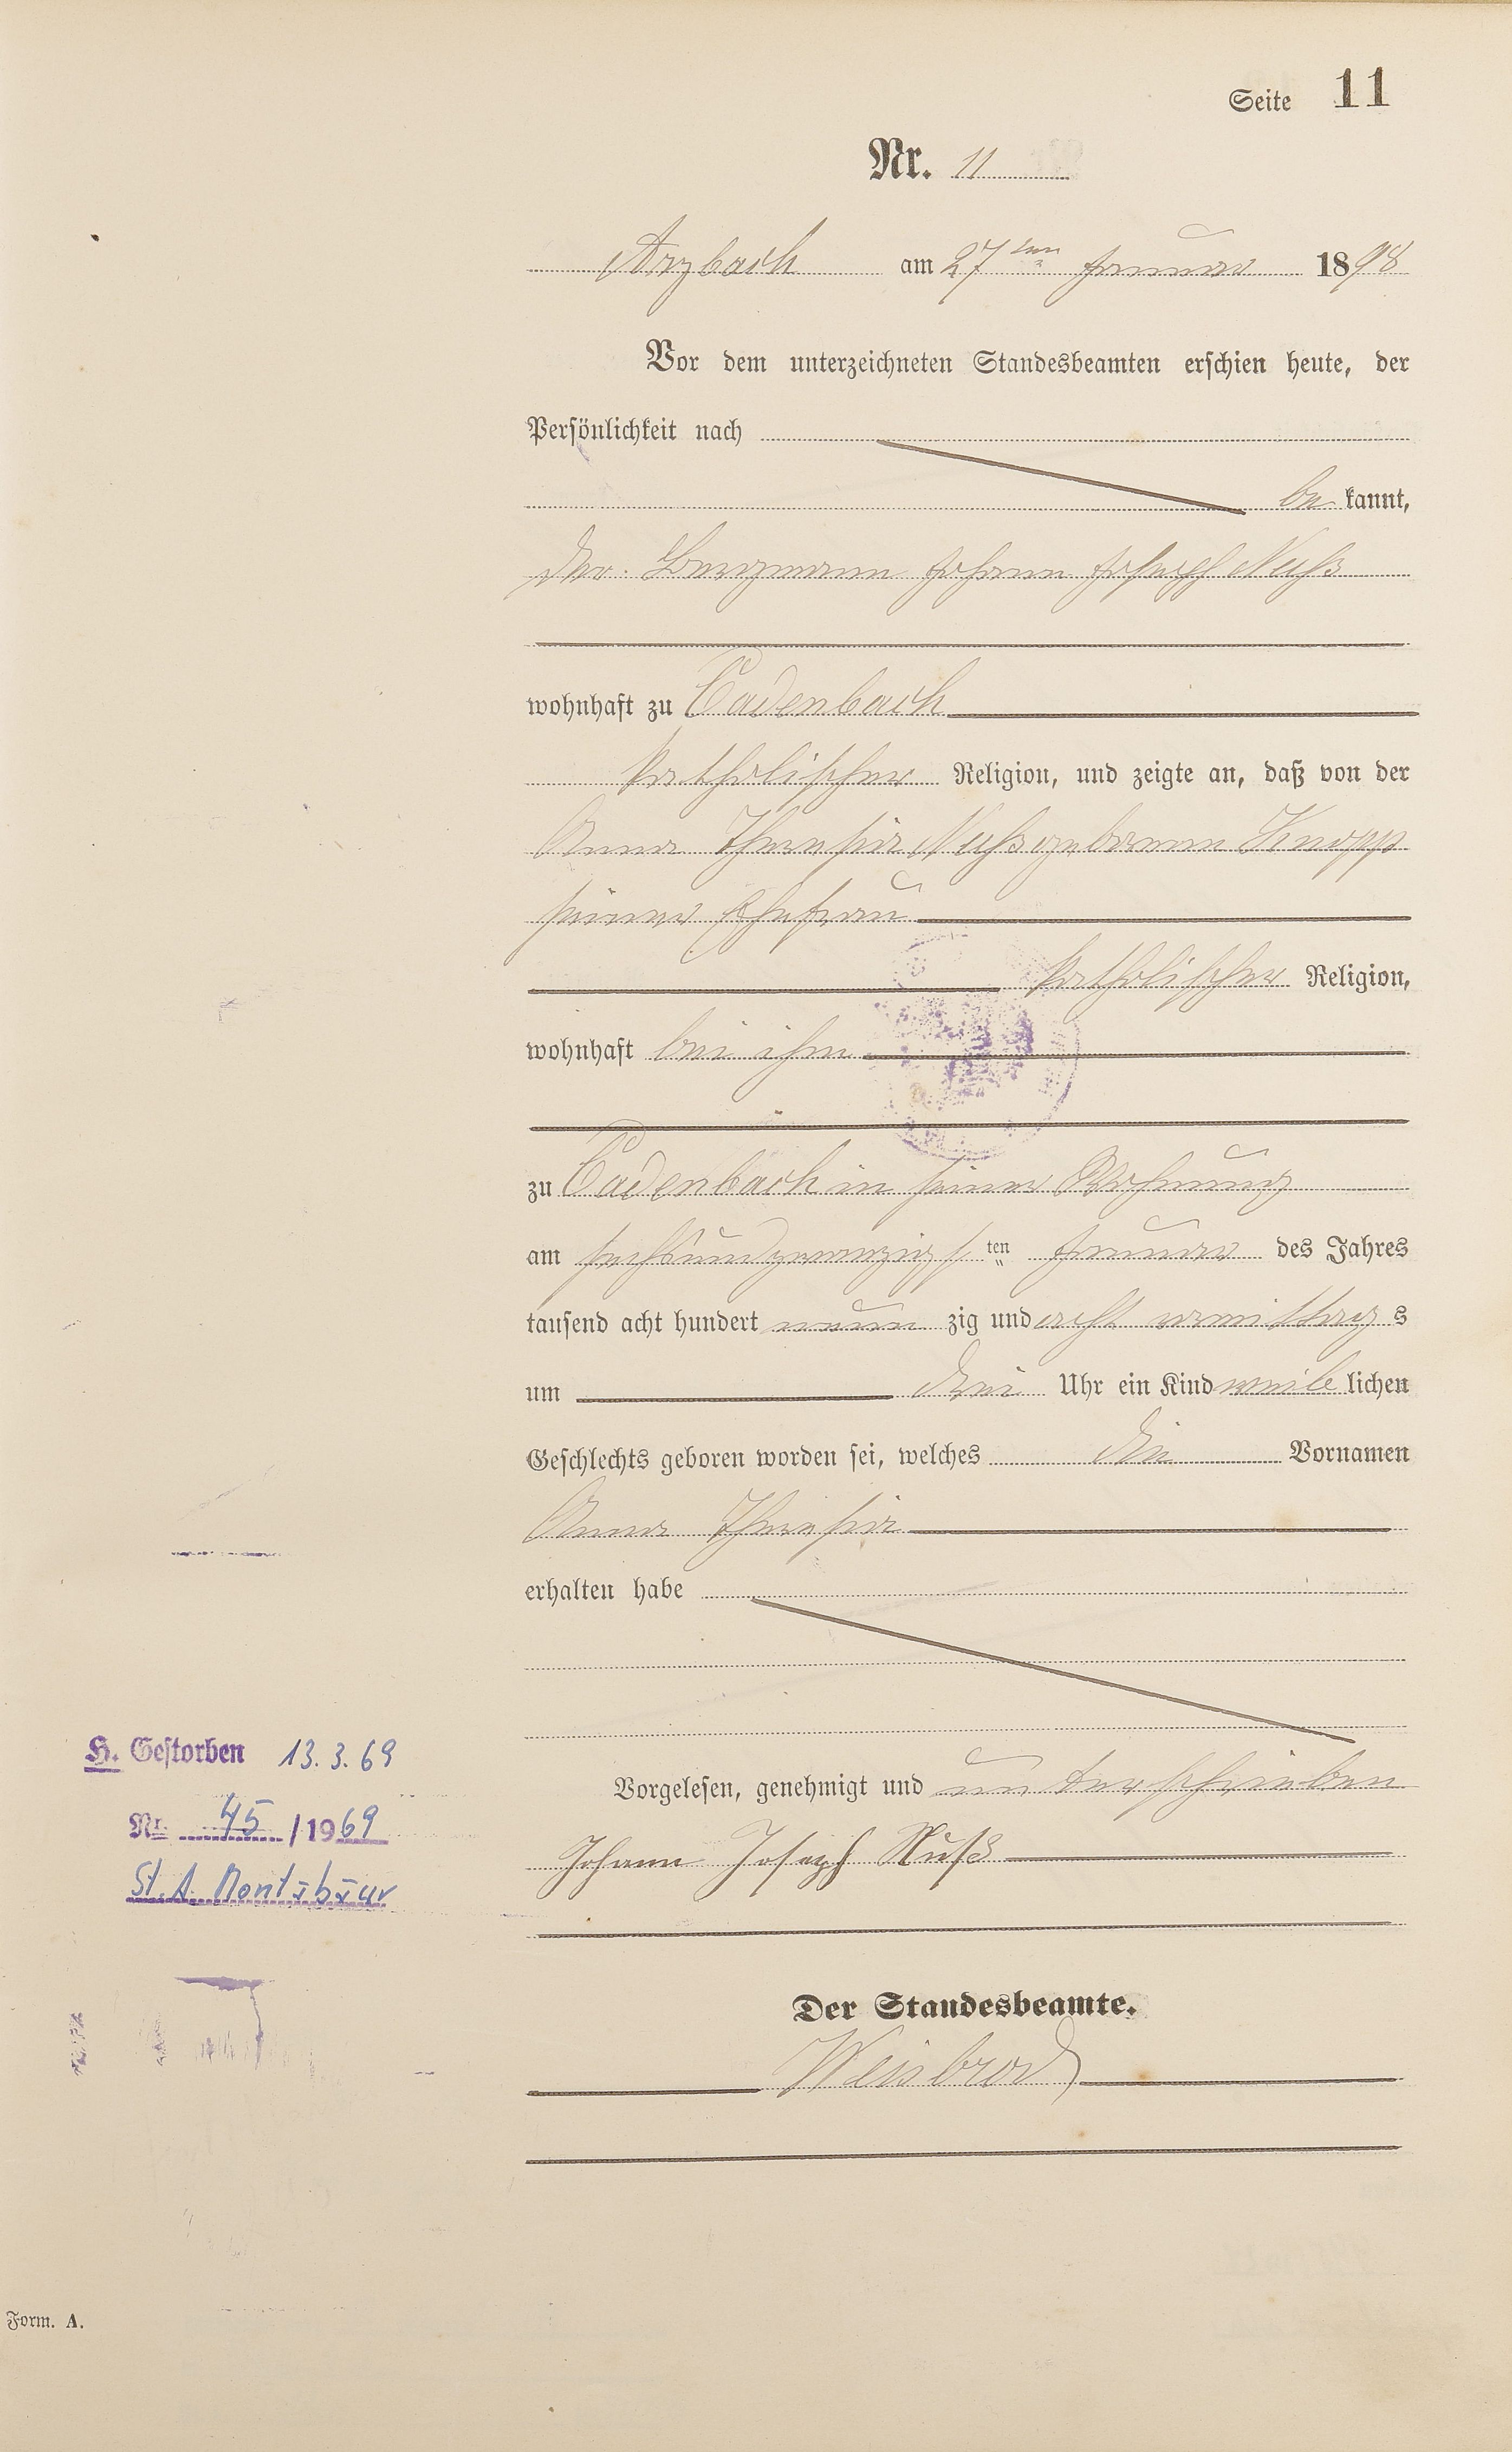 Seite 11
Nr. 11
Arzbach am 27ten Januar 1898
Vor dem unterzeichneten Standesbeamten erschien heute, der
Persönlichkeit nach
be kannt,
der Bergmann Johann Joseph Nuß
wohnhaft zu Cadenbach
katholischer Religion, und zeigte an, daß von der
Anna Theresia Nuß geborene Knopp
seiner Ehefrau
katholischer Religion,
wohnhaft bei ihm
zu Cadenbach in seiner Wohnung
am sechsundzwanzigs ten Januar des Jahres
tausend acht hundert neun zig und acht vormittag s
um drei Uhr ein Kind weib lichen
Geschlechts geboren worden sei, welches die Vornamen
Anna Theresia
erhalten habe
H. Gestorben 13.3.69
Nr. 45 / 1969
St. A. Montabaur
Vorgelesen, genehmigt und unterschrieben
Johann Joseph Nuß
Der Standesbeamte.
Weisbrod
Form. A.